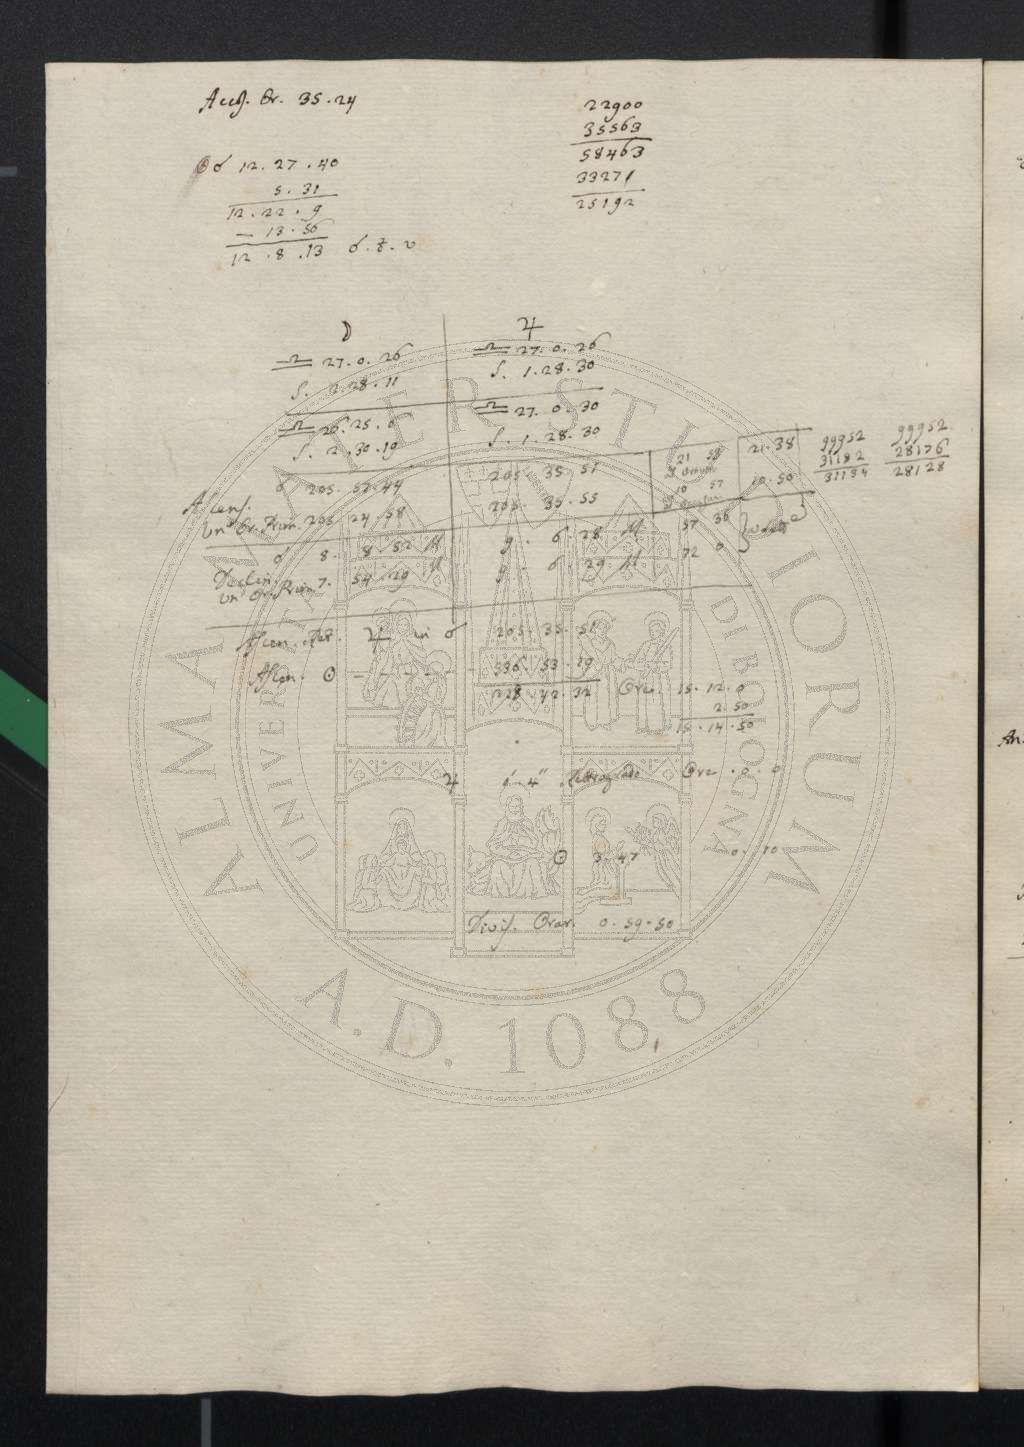 Accel. Or. 35.24
22900
35563
58463
33271
25192
☉ ☌ 12. 27. 40
5. 31
12. 22. 9
— 13. 56
12. 8. 13 ☌. t. v
☽ ♃
♎ 27. 0. 26 ♎ 27. 0. 26
S. 2. 28. 11 S. 1. 28. 30
♎ 26. 25. 0 ♎ 27. 0. 30
S. 2. 30. 19 S. 1. 28. 30
☌ 205. 57. 44 205. 35. 51
21 58
10 57
21. 38
10. 50
99952 99952
31182 28176
31134 28128
Ascens.
un' Or. Prim. 205 24. 58 205. 35. 55
☌ 8. 8. 52 M 9. 6. 28 M 57 36
Declin.
un' Or. Prim. 7. 54. 29 M 9. 6. 29. M 72 0
Ascen. Ret. ♃ in ☌ 205. 35. 51
Ascen. ☉ — — — — 336. 53. 19
228. 42. 32 Ore. 15. 12. 0
2. 50
15. 14. 50
♃ in 4" Ore. 0. 0
☉ 3. 47 0. 10
Divis. Orar. 0. 59. 50
ALMA MATER STUDIORUM
A.D. 1088
UNIVERSITÀ DI BOLOGNA